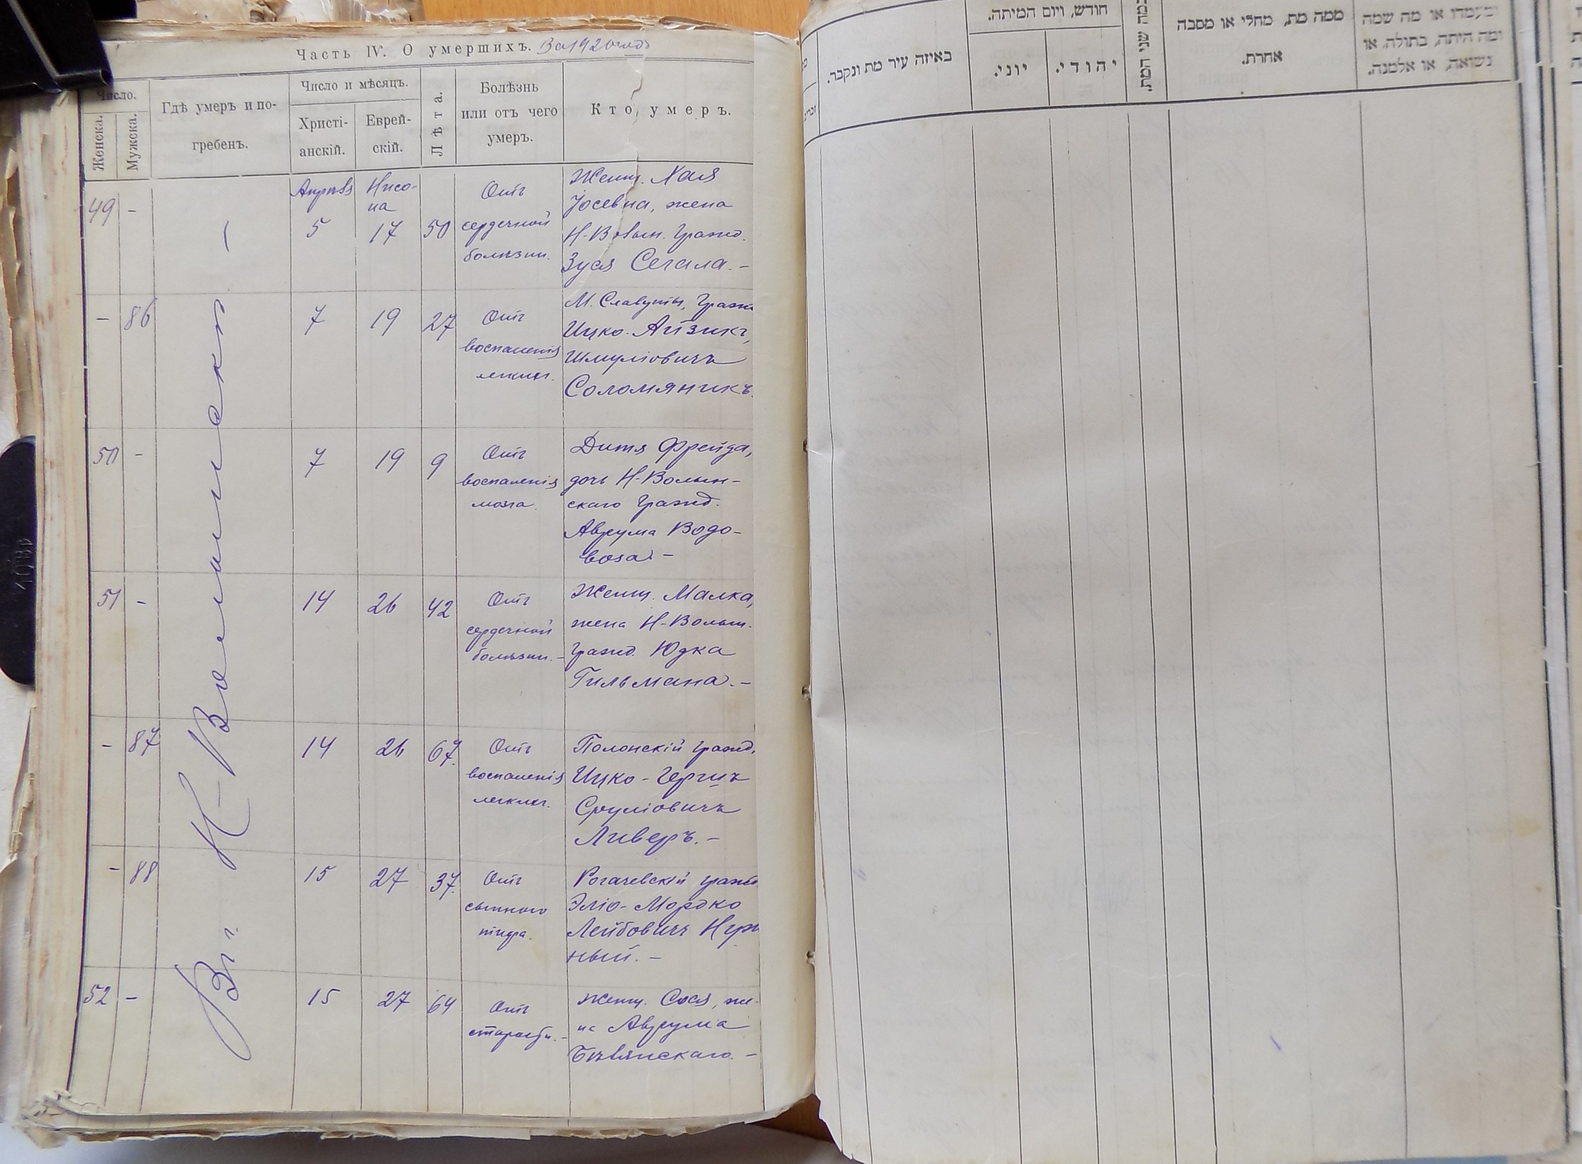 Часть IV. О умершихъ. За 1920 годъ
Число.
Женска.
Мужска.
Гдѣ умеръ и по-
гребенъ.
Число и мѣсяцъ.
Христі-
анскій.
Еврей-
скій.
Лѣта.
Болѣзнь
или отъ чего
умеръ.
Кто умеръ.
Въ Н-Волынскѣ
49 - Апрѣль 5 Нисо-
на 17 50
Отъ
сердечной
болѣзни.
Женщ. Хая
Іосевна, жена
Н-Волын. гражд.
Зуся Сегала. -
- 86 7 19 27
Отъ
воспаленія
легких.
М. Славуты, гражд
Ицко-Айзикъ
Шмуліовичъ
Соломяникъ.
50 - 7 19 9
Отъ
воспаленія
мозга.
Дитя Фрейда,
дочь Н-Волын-
скаго гражд.
Аврума Водо-
воза -
51 - 14 26 42
Отъ
сердечной
болѣзни. -
Женщ. Малка,
жена Н-Волын.
гражд. Юдка
Гильмана. -
- 87 14 26 67.
Отъ
воспаленія
легких.
Полонскій гражд.
Ицко-Гершъ
Сруліовичъ
Ливеръ. -
- 88 15 27 37.
Отъ
сыпного
тифа.
Рогачевскій гражд
Эліо-Мордко
Лейбовичъ
ный. -
52 - 15 27 64
Отъ
старости. -
Женщ. Сося, же-
на Аврума
חודש, ויום המיתה.
באיזה עיר מת ונקבר.
יוני.
יהודי.
כמה שני המת.
ממה מת, מחלי או מסבה
אחרת.
ומעמדו או מה שמה
ומה היתה, בתולה, או
נשואה, או אלמנה.